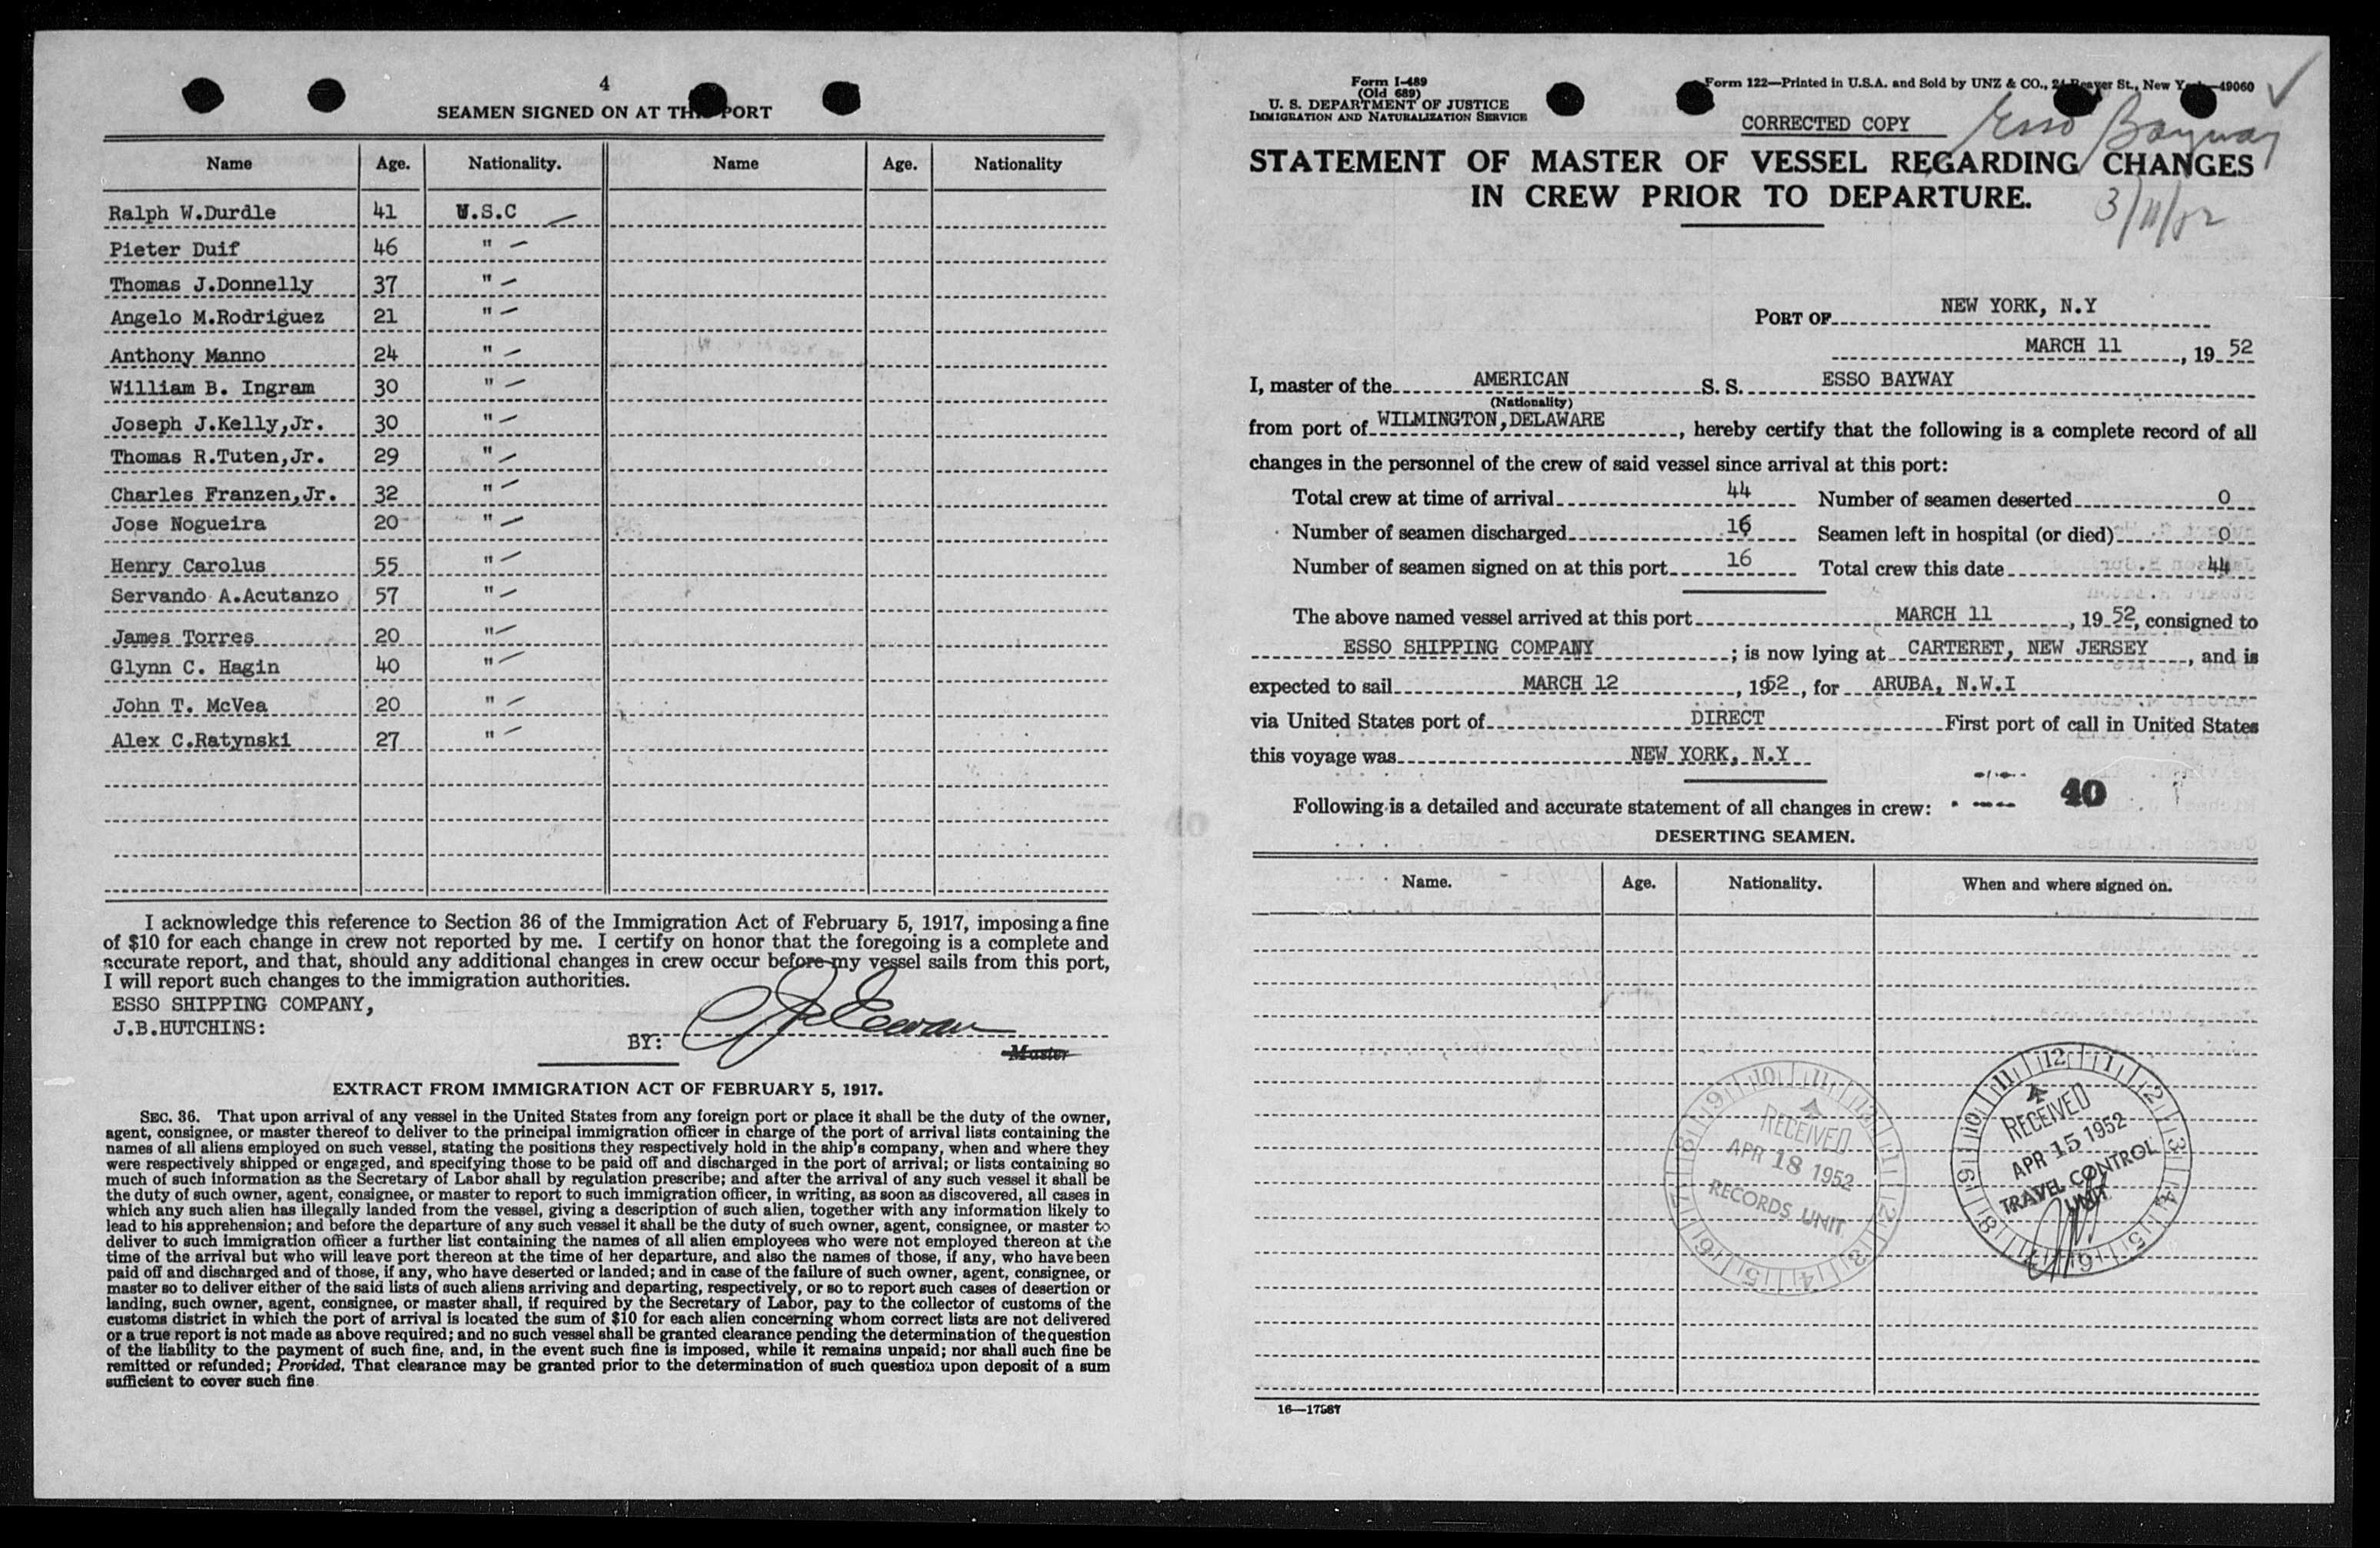 4
SEAMEN SIGNED ON AT THIS PORT
Name Age. Nationality. Name Age. Nationality
Ralph W.Durdle 41 U.S.C
Pieter Duif 46 "
Thomas J.Donnelly 37 "
Angelo M.Rodriguez 21 "
Anthony Manno 24 "
William B. Ingram 30 "
Joseph J.Kelly,Jr. 30 "
Thomas R.Tuten,Jr. 29 "
Charles Franzen,Jr. 32 "
Jose Nogueira 20 "
Henry Carolus 55 "
Servando A.Acutanzo 57 "
James Torres 20 "
Glynn C. Hagin 40 "
John T. McVea 20 "
Alex C.Ratynski 27 "
I acknowledge this reference to Section 36 of the Immigration Act of February 5, 1917, imposing a fine
of $10 for each change in crew not reported by me. I certify on honor that the foregoing is a complete and
accurate report, and that, should any additional changes in crew occur before my vessel sails from this port,
I will report such changes to the immigration authorities.
ESSO SHIPPING COMPANY,
J.B.HUTCHINS:
BY:
Master
EXTRACT FROM IMMIGRATION ACT OF FEBRUARY 5, 1917.
SEC. 36. That upon arrival of any vessel in the United States from any foreign port or place it shall be the duty of the owner,
agent, consignee, or master thereof to deliver to the principal immigration officer in charge of the port of arrival lists containing the
names of all aliens employed on such vessel, stating the positions they respectively hold in the ship's company, when and where they
were respectively shipped or engaged, and specifying those to be paid off and discharged in the port of arrival; or lists containing so
much of such information as the Secretary of Labor shall by regulation prescribe; and after the arrival of any such vessel it shall be
the duty of such owner, agent, consignee, or master to report to such immigration officer, in writing, as soon as discovered, all cases in
which any such alien has illegally landed from the vessel, giving a description of such alien, together with any information likely to
lead to his apprehension; and before the departure of any such vessel it shall be the duty of such owner, agent, consignee, or master to
deliver to such immigration officer a further list containing the names of all alien employees who were not employed thereon at the
time of the arrival but who will leave port thereon at the time of her departure, and also the names of those, if any, who have been
paid off and discharged and of those, if any, who have deserted or landed; and in case of the failure of such owner, agent, consignee, or
master so to deliver either of the said lists of such aliens arriving and departing, respectively, or so to report such cases of desertion or
landing, such owner, agent, consignee, or master shall, if required by the Secretary of Labor, pay to the collector of customs of the
customs district in which the port of arrival is located the sum of $10 for each alien concerning whom correct lists are not delivered
or a true report is not made as above required; and no such vessel shall be granted clearance pending the determination of the question
of the liability to the payment of such fine, and, in the event such fine is imposed, while it remains unpaid; nor shall such fine be
remitted or refunded; Provided, That clearance may be granted prior to the determination of such question upon deposit of a sum
sufficient to cover such fine.
Form I-489
(Old 689)
U. S. DEPARTMENT OF JUSTICE
IMMIGRATION AND NATURALIZATION SERVICE
Form 122—Printed in U.S.A. and Sold by UNZ & CO., 24 Beaver St., New York—49060
CORRECTED COPY Esso Bayway
STATEMENT OF MASTER OF VESSEL REGARDING CHANGES
IN CREW PRIOR TO DEPARTURE.
3/11/52
PORT OF NEW YORK, N.Y
MARCH 11, 19 52
I, master of the AMERICAN S. S. ESSO BAYWAY
(Nationality)
from port of WILMINGTON,DELAWARE, hereby certify that the following is a complete record of all
changes in the personnel of the crew of said vessel since arrival at this port:
Total crew at time of arrival 44 Number of seamen deserted 0
Number of seamen discharged 16 Seamen left in hospital (or died) 0
Number of seamen signed on at this port 16 Total crew this date 44
The above named vessel arrived at this port MARCH 11, 19 52, consigned to
ESSO SHIPPING COMPANY; is now lying at CARTERET, NEW JERSEY, and is
expected to sail MARCH 12, 1952, for ARUBA, N.W.I
via United States port of DIRECT First port of call in United States
this voyage was NEW YORK, N.Y
Following is a detailed and accurate statement of all changes in crew: 40
DESERTING SEAMEN.
Name. Age. Nationality. When and where signed on.
RECEIVED
APR 18 1952
RECORDS UNIT
RECEIVED
APR 15 1952
TRAVEL CONTROL
UNIT
16—17567